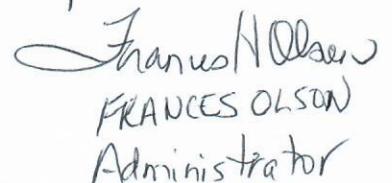 Frances H Olson
FRANCES OLSON
Administrator